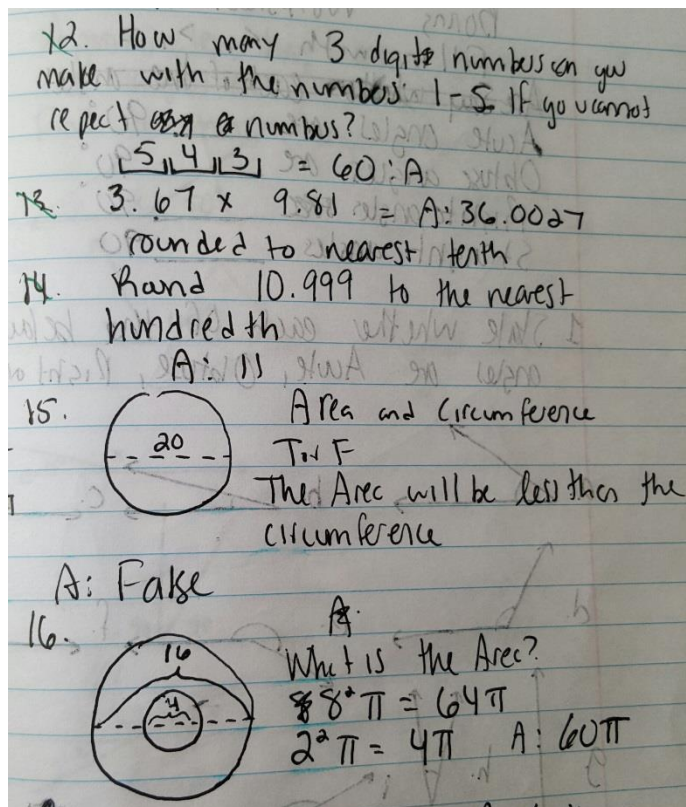 12. How many 3 digit numbers can you
make with the numbers 1-5 If you cannot
repect numbus?
5 4 3 = 60 : A
13. 3.67 x 9.81 = A: 36.0027
rounded to nearest tenth
14. Rand 10.999 to the nearest
hundredth
A: 11
15. 20 Area and Circumference
T or F
The Area will be less than the
circumference
A: False
16. A:
16 What is the Area?
8²π = 64π
4 2²π = 4π A: 60π